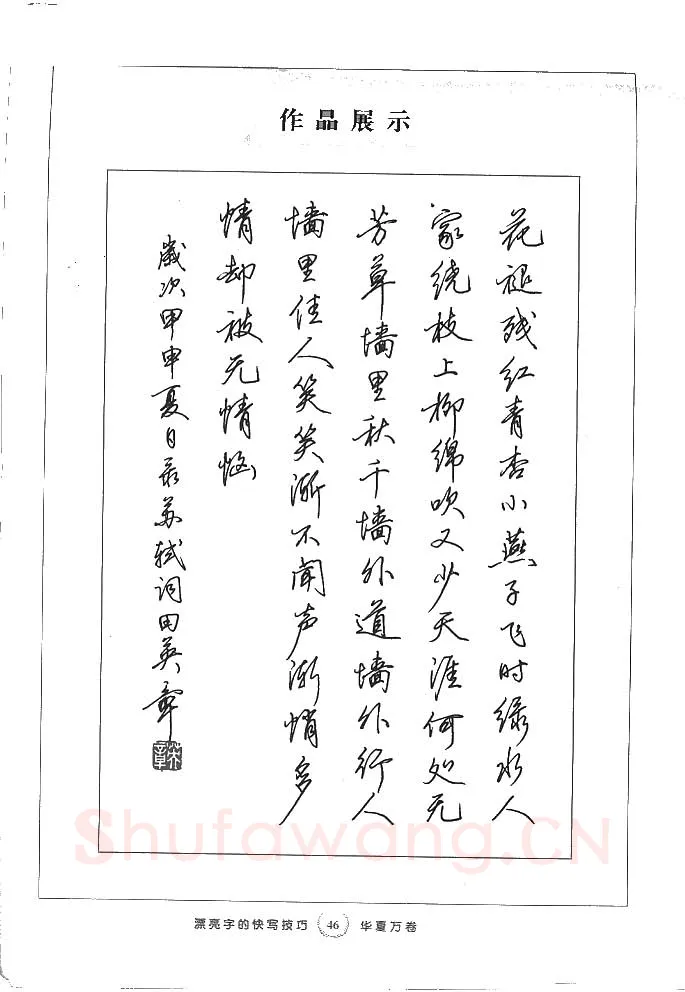 作品展示
花褪残红青杏小燕子飞时绿水人
家绕枝上柳绵吹又少天涯何处无
芳草墙里秋千墙外道墙外行人
墙里佳人笑笑渐不闻声渐悄多
情却被无情恼
歲次甲申夏日录苏轼词田英章
英章
Shufawang.CN
漂亮字的快写技巧 46 华夏万卷